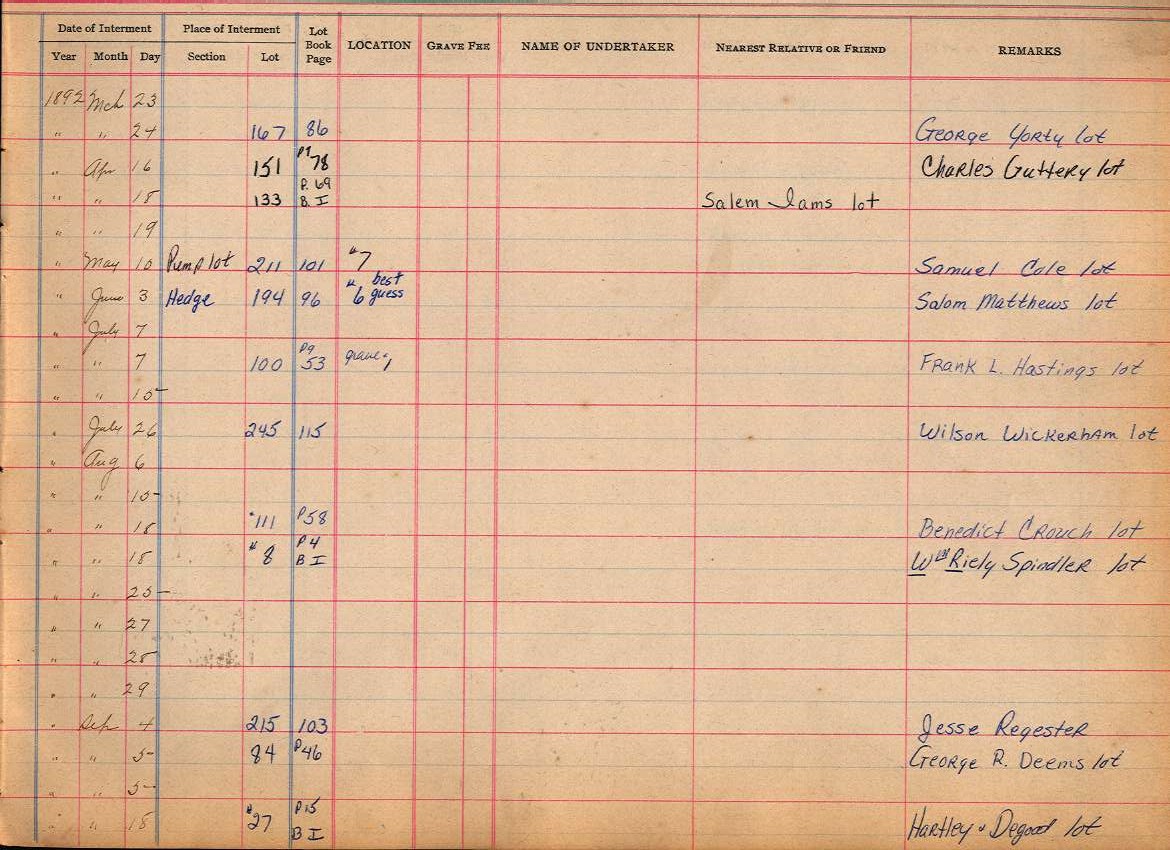 Date of Interment Place of Interment Lot Book Page LOCATION GRAVE FEE NAME OF UNDERTAKER NEAREST RELATIVE OR FRIEND REMARKS
Year Month Day Section Lot
1892 Mch 23
" " 24 167 86 George Yorty lot
" Apr 16 151 Pg 78 Charles Guttery lot
" " 18 133 P. 69 B. I Salem Iams lot
" " 19
" May 10 Pump lot 211 101 "7 Samuel Cole lot
" June 3 Hedge 194 96 "6 best guess Salom Matthews lot
" July 7
" " 7 100 Pg 53 grave 1 Frank L. Hastings lot
" " 15
" July 26 245 115 Wilson Wickerham lot
" Aug 6
" " 15
" " 18 "111 P58 Benedict Crouch lot
" " 18 "8 P4 B I Wm Riely Spindler lot
" " 25
" " 27
" " 28
" " 29
" Sep 4 215 103 Jesse Regester
" " 5 84 P46 George R. Deems lot
" " 5
" " 18 "27 P15 B I Hartley & Degood lot